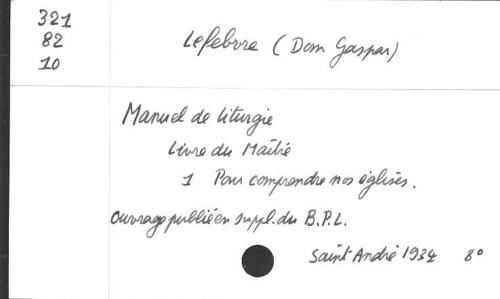 321
82
10
Lefebvre (Dom Gaspar)
Manuel de liturgie
Livre du Maître
1 Pour comprendre nos églises.
Ouvrage publié en suppl. du B.P.L.
Saint André 1934 8°